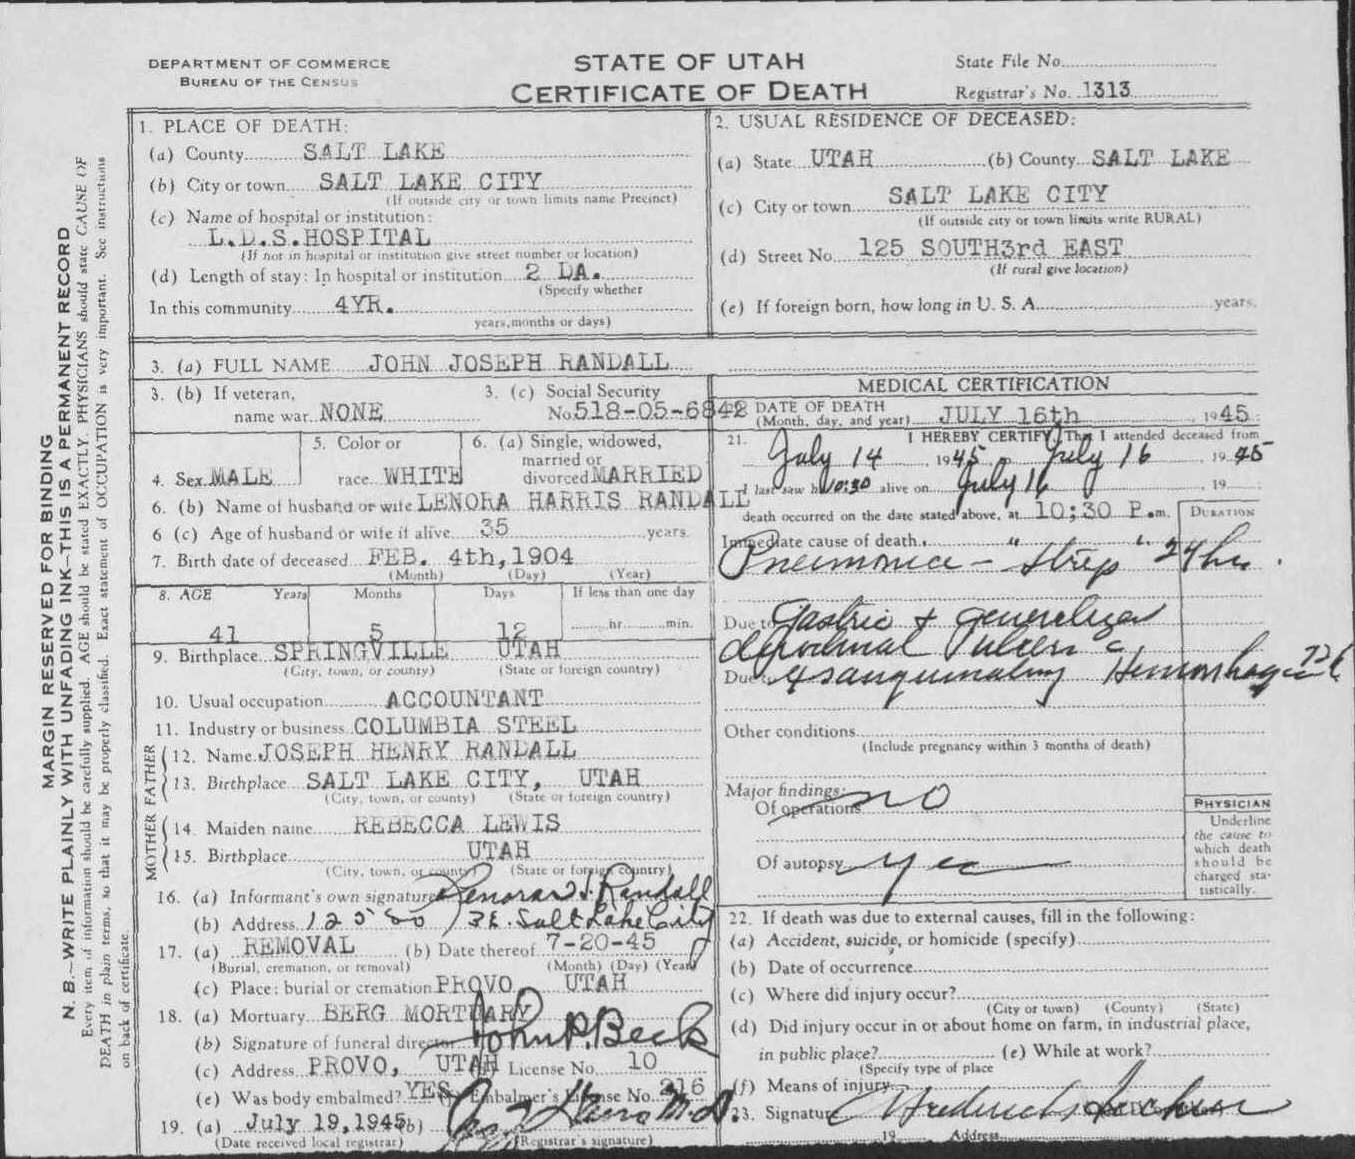 DEPARTMENT OF COMMERCE
BUREAU OF THE CENSUS
STATE OF UTAH
CERTIFICATE OF DEATH
State File No.
Registrar's No. 1313
MARGIN RESERVED FOR BINDING
N. B.—WRITE PLAINLY WITH UNFADING INK—THIS IS A PERMANENT RECORD
Every item of information should be carefully supplied. AGE should be stated EXACTLY. PHYSICIANS should state CAUSE OF
DEATH in plain terms, so that it may be properly classified. Exact statement of OCCUPATION is very important. See instructions
on back of certificate.
1. PLACE OF DEATH:
(a) County SALT LAKE
(b) City or town SALT LAKE CITY
(If outside city or town limits name Precinct)
(c) Name of hospital or institution:
L.D.S. HOSPITAL
(If not in hospital or institution give street number or location)
(d) Length of stay: In hospital or institution 2 DA.
(Specify whether
In this community 4YR.
years, months or days)
2. USUAL RESIDENCE OF DECEASED:
(a) State UTAH (b) County SALT LAKE
(c) City or town SALT LAKE CITY
(If outside city or town limits write RURAL)
(d) Street No. 125 SOUTH 3rd EAST
(If rural give location)
(e) If foreign born, how long in U. S. A. years.
3. (a) FULL NAME JOHN JOSEPH RANDALL
3. (b) If veteran,
name war NONE
3. (c) Social Security
No. 518-05-6842
4. Sex MALE
5. Color or
race WHITE
6. (a) Single, widowed,
married or
divorced MARRIED
6. (b) Name of husband or wife LENORA HARRIS RANDALL
6 (c) Age of husband or wife if alive 35 years
7. Birth date of deceased FEB. 4th, 1904
(Month) (Day) (Year)
8. AGE Years Months Days If less than one day
41 5 12 hr. min.
9. Birthplace SPRINGVILLE UTAH
(City, town, or county) (State or foreign country)
10. Usual occupation ACCOUNTANT
11. Industry or business COLUMBIA STEEL
FATHER
12. Name JOSEPH HENRY RANDALL
13. Birthplace SALT LAKE CITY, UTAH
(City, town, or county) (State or foreign country)
MOTHER
14. Maiden name REBECCA LEWIS
15. Birthplace UTAH
(City, town, or county) (State or foreign country)
16. (a) Informant's own signature Lenora H. Randall
(b) Address 125 So 3 E. Salt Lake City
17. (a) REMOVAL (b) Date thereof 7-20-45
(Burial, cremation, or removal) (Month) (Day) (Year)
(c) Place: burial or cremation PROVO, UTAH
18. (a) Mortuary BERG MORTUARY
(b) Signature of funeral director John P. Beck
(c) Address PROVO, UTAH License No. 10
(e) Was body embalmed? YES Embalmer's License No. 216
19. (a) July 19, 1945 (b) M.D.
(Date received local registrar) (Registrar's signature)
MEDICAL CERTIFICATION
DATE OF DEATH
(Month, day, and year) JULY 16th, 1945
21. I HEREBY CERTIFY, That I attended deceased from
July 14 1945, to July 16 1945
I last saw h 10:30 alive on July 16 19
death occurred on the date stated above, at 10;30 P.m.
DURATION
Immediate cause of death " "
Pneumonia - Strep 24 hrs.
Due to Gastric + generalized
abdominal ulcers c
Due to exsanguinating Hemorrhage
Other conditions
(Include pregnancy within 3 months of death)
Major findings:
Of operations no
Of autopsy yes
PHYSICIAN
Underline
the cause to
which death
should be
charged sta-
tistically.
22. If death was due to external causes, fill in the following:
(a) Accident, suicide, or homicide (specify)
(b) Date of occurrence
(c) Where did injury occur?
(City or town) (County) (State)
(d) Did injury occur in or about home on farm, in industrial place,
in public place? (e) While at work?
(Specify type of place
(f) Means of injury
23. Signature
19 Address